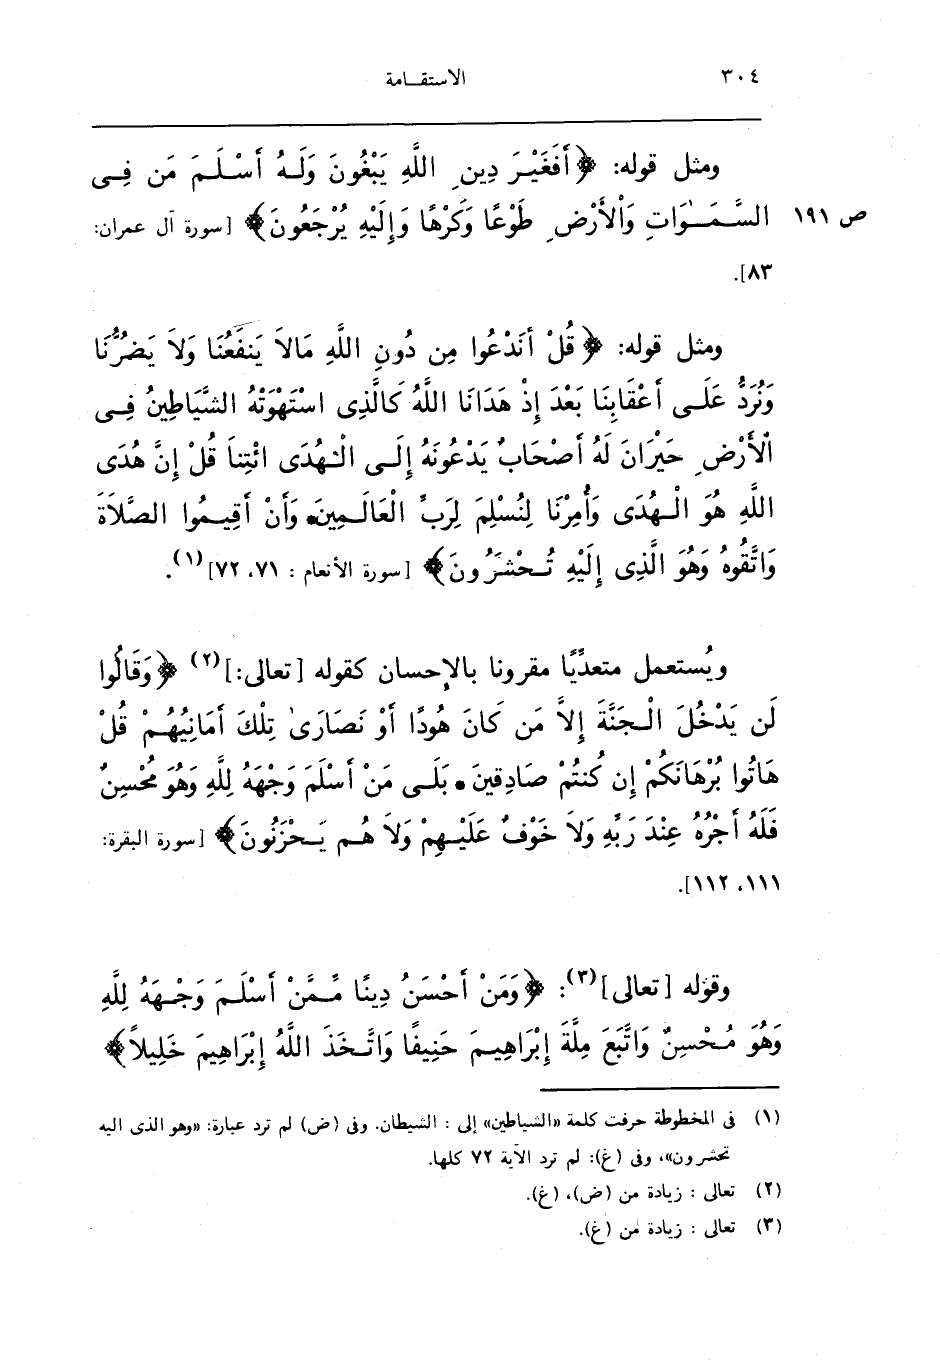 ٣٠٤ الاستقـامة
ومثل قوله: ﴿أَفَغَيْرَ دِينِ اللَّهِ يَبْغُونَ وَلَهُ أَسْلَمَ مَن فِى
ص ١٩١ السَّمَـٰوَاتِ وَالْأَرْضِ طَوْعًا وَكَرْهًا وَإِلَيْهِ يُرْجَعُونَ﴾ [سورة آل عمران:
٨٣].
ومثل قوله: ﴿قُلْ أَنَدْعُوا مِن دُونِ اللَّهِ مَالاَ يَنفَعُنَا وَلاَ يَضُرُّنَا
وَنُرَدُّ عَلَى أَعْقَابِنَا بَعْدَ إِذْ هَدَانَا اللَّهُ كَالَّذِى اسْتَهْوَتْهُ الشَّيَاطِينُ فِى
الْأَرْضِ حَيْرَانَ لَهُ أَصْحَابٌ يَدْعُونَهُ إِلَى الْهُدَى ائْتِنَا قُلْ إِنَّ هُدَى
اللَّهِ هُوَ الْهُدَى وَأُمِرْنَا لِنُسْلِمَ لِرَبِّ الْعَالَمِينَ • وَأَنْ أَقِيمُوا الصَّلاَةَ
وَاتَّقُوهُ وَهُوَ الَّذِى إِلَيْهِ تُحْشَرُونَ﴾ [سورة الأنعام : ٧١، ٧٢](١).
ويُستعمل متعدِّيًا مقرونا بالإحسان كقوله [تعالى:](٢) ﴿وَقَالُوا
لَن يَدْخُلَ الْجَنَّةَ إِلاَّ مَن كَانَ هُودًا أَوْ نَصَارَىٰ تِلْكَ أَمَانِيُّهُمْ قُلْ
هَاتُوا بُرْهَانَكُمْ إِن كُنتُمْ صَادِقِينَ • بَلَى مَنْ أَسْلَمَ وَجْهَهُ لِلَّهِ وَهُوَ مُحْسِنٌ
فَلَهُ أَجْرُهُ عِنْدَ رَبِّهِ وَلاَ خَوْفٌ عَلَيْهِمْ وَلاَ هُم يَحْزَنُونَ﴾ [سورة البقرة:
١١١، ١١٢].
وقوله [تعالى](٣): ﴿وَمَنْ أَحْسَنُ دِينًا مِّمَّنْ أَسْلَمَ وَجْهَهُ لِلَّهِ
وَهُوَ مُحْسِنٌ وَاتَّبَعَ مِلَّةَ إِبْرَاهِيمَ حَنِيفًا وَاتَّخَذَ اللَّهُ إِبْرَاهِيمَ خَلِيلاً﴾
(١) فى المخطوطة حرفت كلمة «الشياطين» إلى : الشيطان. وفى (ض) لم ترد عبارة: «وهو الذى اليه
تحشرون»، وفى (غ): لم ترد الآية ٧٢ كلها.
(٢) تعالى : زيادة من (ض)، (غ).
(٣) تعالى : زيادة من (غ).